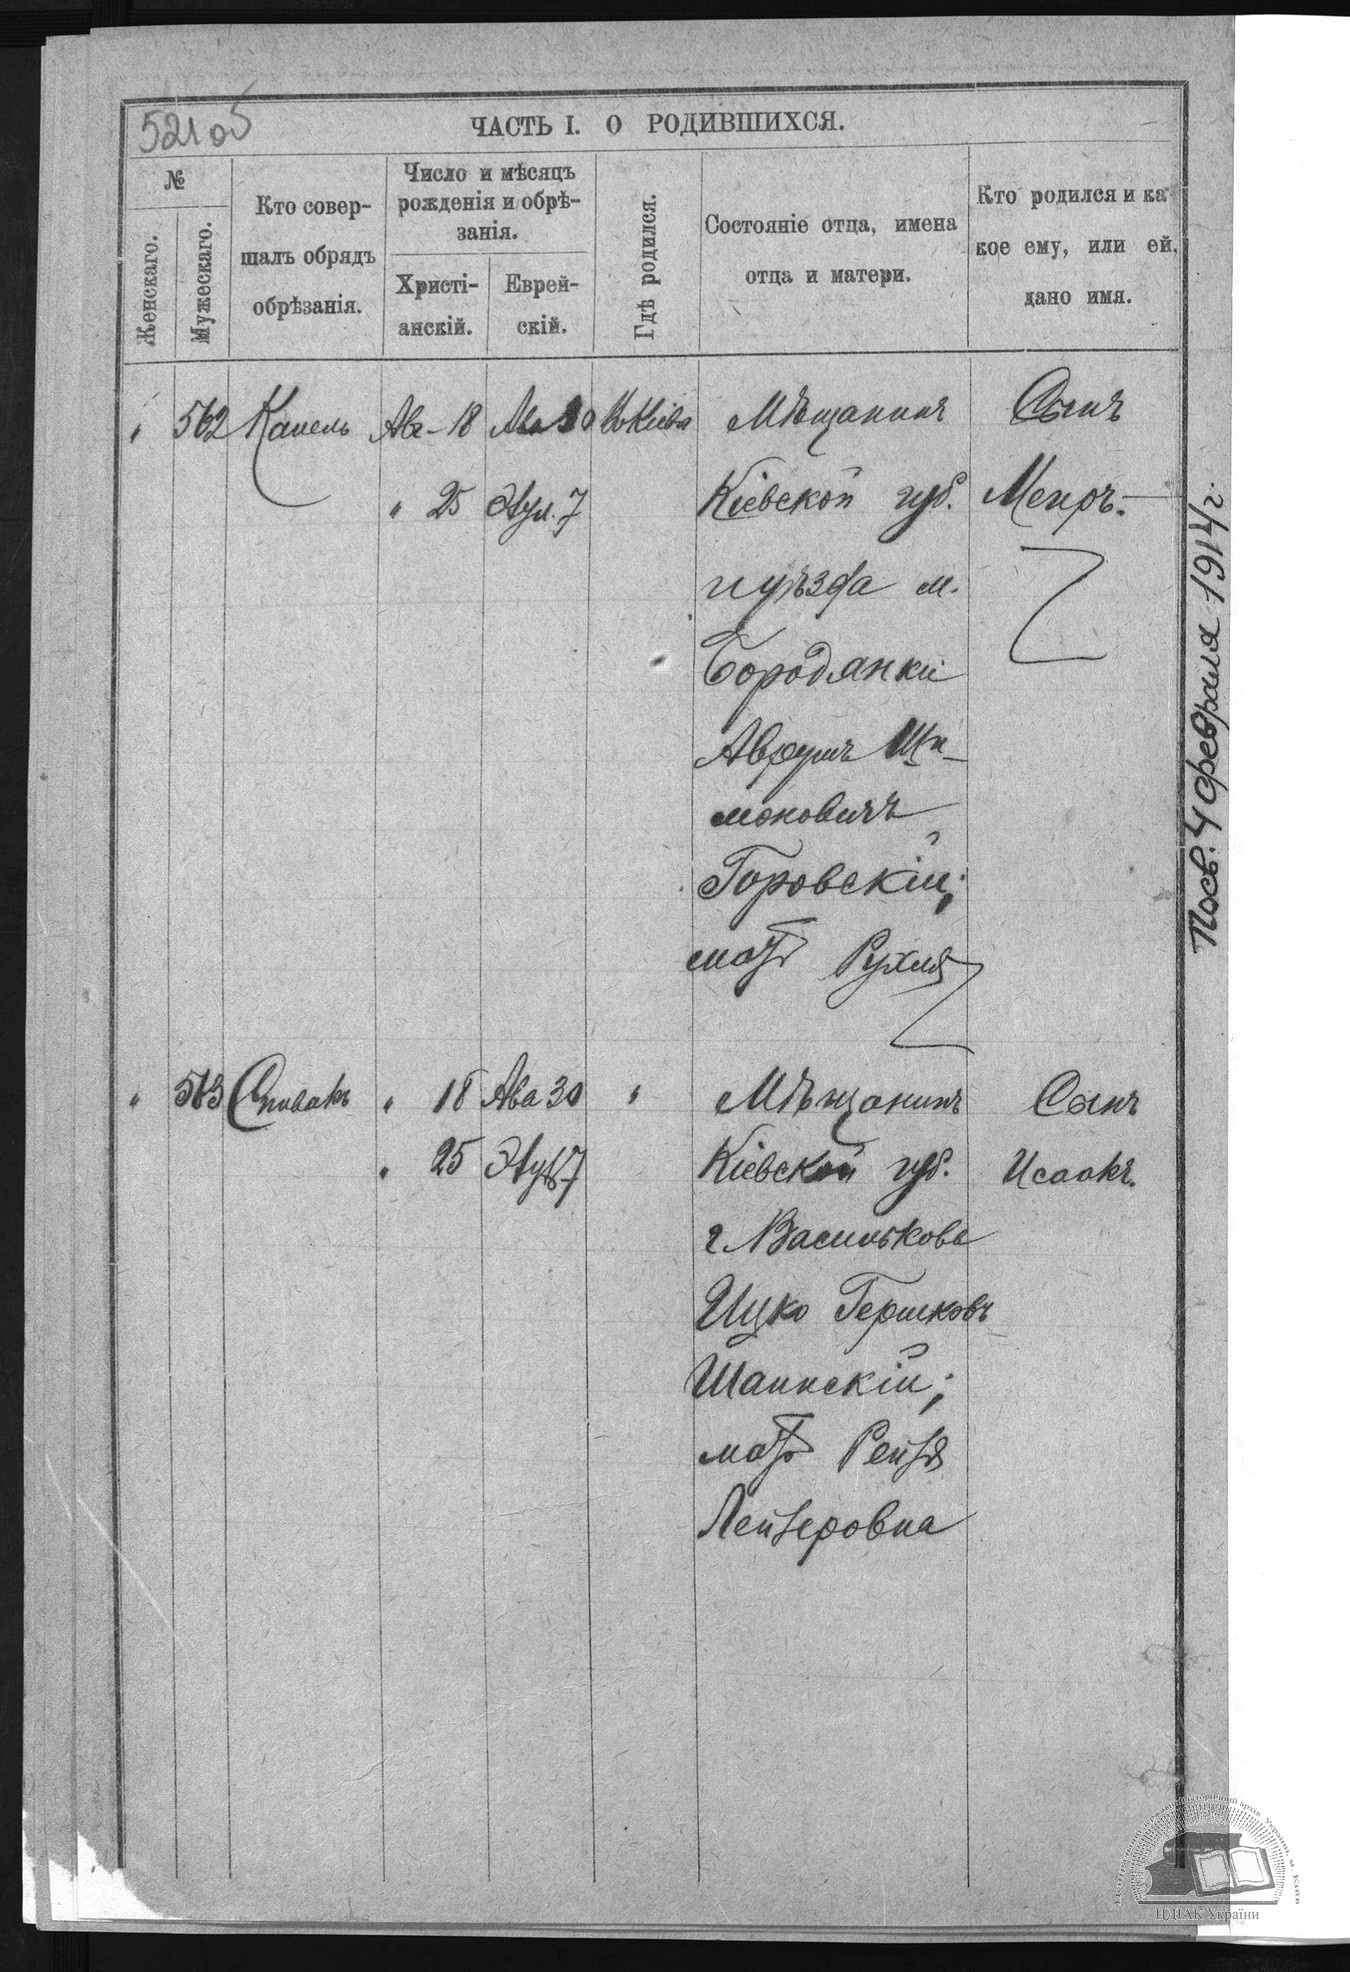 521об
ЧАСТЬ I. О РОДИВШИХСЯ.
№
Женскаго.
Мужескаго.
Кто совер-
шалъ обрядъ
обрѣзанія.
Число и мѣсяцъ
рожденія и обрѣ-
занія.
Христі-
анскій.
Еврей-
скій.
Гдѣ родился.
Состояніе отца, имена
отца и матери.
Кто родился и ка-
кое ему, или ей,
дано имя.
" 562 Капель Ав- 18 Ава 30 Въ Кіевѣ Мѣщанинъ Сынъ
" 25 Элул. 7 Кіевской губ. Меиръ.-
и уѣзда м.
Бородянки
Аврумъ Ши-
моновичъ
Горовскій;
мать Рухля
" 563 Спивакъ " 18 Ава 30 " Мѣщанинъ Сынъ
" 25 Элул 7 Кіевской губ. Исаакъ.
г. Василькова
Ицко Гершковъ
Шаинскій;
мать Рейзя
Лейзеровна
Посв. 4 февраля 1914 г.
ЦДІАК України